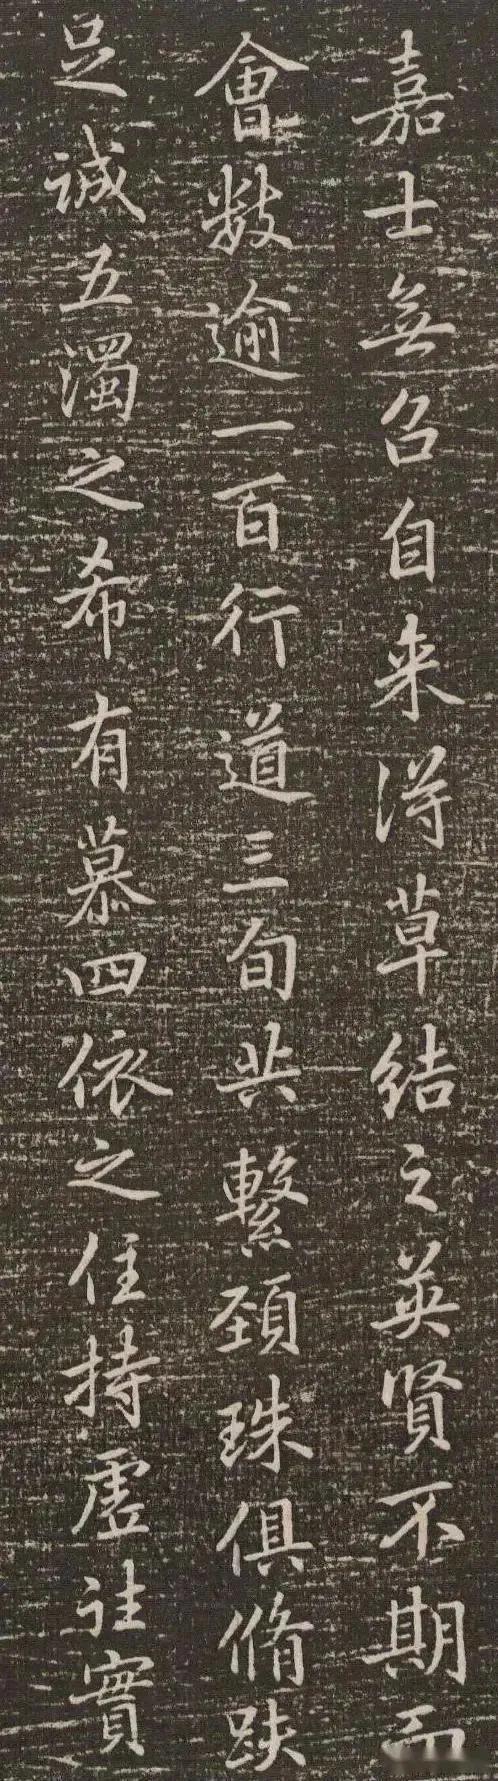 嘉士無召自来得草結之英賢不期而
會数逾一百行道三旬共繫頚珠俱脩趺
足誠五濁之希有慕四依之住持虛往實